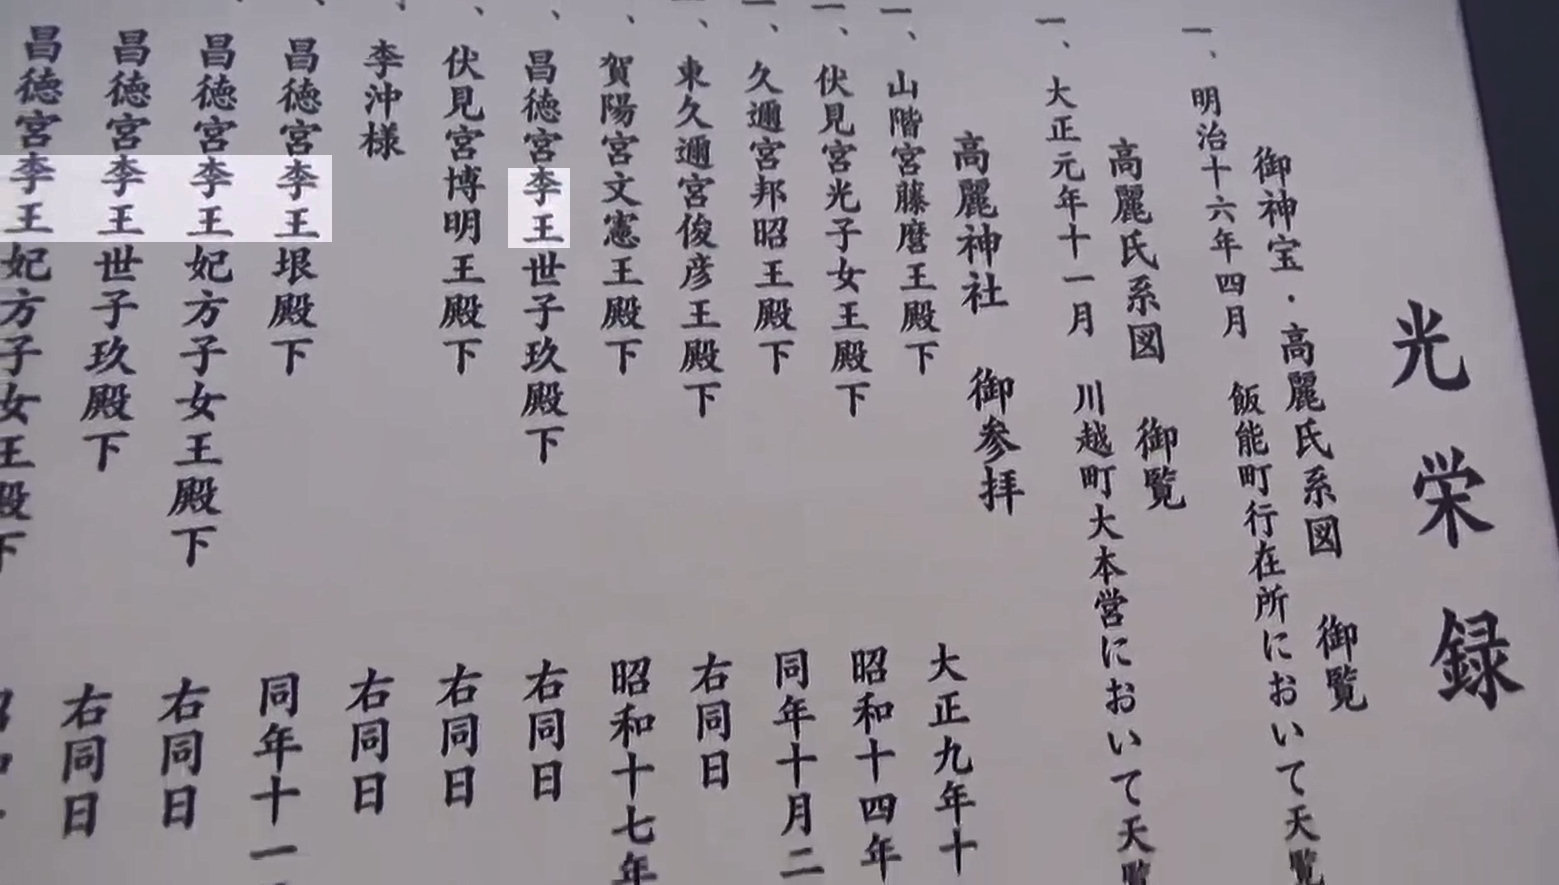 光栄録
御神宝・高麗氏系図 御覧
一、明治十六年四月 飯能町行在所において天覧
高麗氏系図 御覧
一、大正元年十一月 川越町大本営において天覧
高麗神社 御参拝
一、山階宮藤麿王殿下 大正九年十
一、伏見宮光子女王殿下 昭和十四年
一、久邇宮邦昭王殿下 同年十月二
一、東久邇宮俊彦王殿下 右同日
、賀陽宮文憲王殿下 昭和十七年
、昌徳宮李王世子玖殿下 右同日
、伏見宮博明王殿下 右同日
李沖様 右同日
昌徳宮李王垠殿下 同年十一
昌徳宮李王妃方子女王殿下 右同日
昌徳宮李王世子玖殿下 右同日
昌徳宮李王妃方子女王殿下